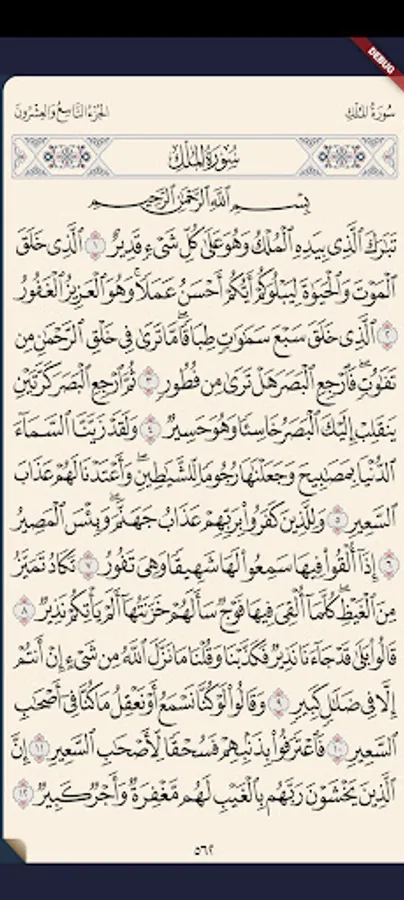 DEBUG
سُورَةُ المُلْكِ الجُزْءُ التَّاسِعُ وَالعِشْرُونَ
سُورَةُ المُلْكِ
بِسْمِ ٱللَّهِ ٱلرَّحْمَٰنِ ٱلرَّحِيمِ
تَبَٰرَكَ ٱلَّذِي بِيَدِهِ ٱلْمُلْكُ وَهُوَ عَلَىٰ كُلِّ شَيْءٖ قَدِيرٌ ١ ٱلَّذِي خَلَقَ
ٱلْمَوْتَ وَٱلْحَيَوٰةَ لِيَبْلُوَكُمْ أَيُّكُمْ أَحْسَنُ عَمَلٗاۚ وَهُوَ ٱلْعَزِيزُ ٱلْغَفُورُ
٢ ٱلَّذِي خَلَقَ سَبْعَ سَمَٰوَٰتٖ طِبَاقٗاۖ مَّا تَرَىٰ فِي خَلْقِ ٱلرَّحْمَٰنِ مِن
تَفَٰوُتٖۖ فَٱرْجِعِ ٱلْبَصَرَ هَلْ تَرَىٰ مِن فُطُورٖ ٣ ثُمَّ ٱرْجِعِ ٱلْبَصَرَ كَرَّتَيْنِ
يَنقَلِبْ إِلَيْكَ ٱلْبَصَرُ خَاسِئٗا وَهُوَ حَسِيرٌ ٤ وَلَقَدْ زَيَّنَّا ٱلسَّمَآءَ
ٱلدُّنْيَا بِمَصَٰبِيحَ وَجَعَلْنَٰهَا رُجُومٗا لِّلشَّيَٰطِينِۖ وَأَعْتَدْنَا لَهُمْ عَذَابَ
ٱلسَّعِيرِ ٥ وَلِلَّذِينَ كَفَرُوا۟ بِرَبِّهِمْ عَذَابُ جَهَنَّمَۖ وَبِئْسَ ٱلْمَصِيرُ
٦ إِذَآ أُلْقُوا۟ فِيهَا سَمِعُوا۟ لَهَا شَهِيقٗا وَهِيَ تَفُورُ ٧ تَكَادُ تَمَيَّزُ
مِنَ ٱلْغَيْظِۖ كُلَّمَآ أُلْقِيَ فِيهَا فَوْجٞ سَأَلَهُمْ خَزَنَتُهَآ أَلَمْ يَأْتِكُمْ نَذِيرٞ ٨
قَالُوا۟ بَلَىٰ قَدْ جَآءَنَا نَذِيرٞ فَكَذَّبْنَا وَقُلْنَا مَا نَزَّلَ ٱللَّهُ مِن شَيْءٍ إِنْ أَنتُمْ
إِلَّا فِي ضَلَٰلٖ كَبِيرٖ ٩ وَقَالُوا۟ لَوْ كُنَّا نَسْمَعُ أَوْ نَعْقِلُ مَا كُنَّا فِيٓ أَصْحَٰبِ
ٱلسَّعِيرِ ١٠ فَٱعْتَرَفُوا۟ بِذَنۢبِهِمْ فَسُحْقٗا لِّأَصْحَٰبِ ٱلسَّعِيرِ ١١ إِنَّ
ٱلَّذِينَ يَخْشَوْنَ رَبَّهُم بِٱلْغَيْبِ لَهُم مَّغْفِرَةٞ وَأَجْرٞ كَبِيرٞ ١٢
٥٦٢